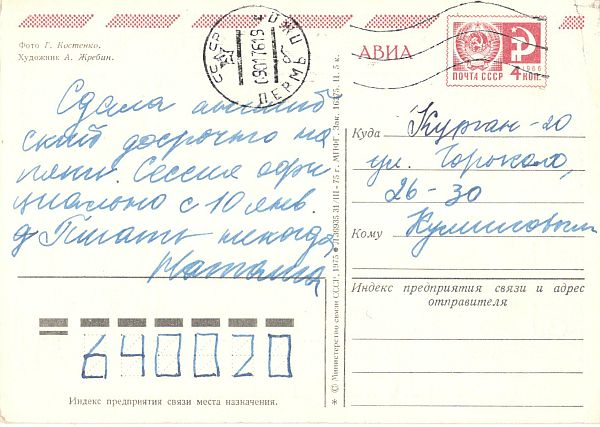 Фото Г. Костенко.
Художник А. Жребин.
СССР
ПЕРМЬ
АВИА
ПОЧТА СССР
1966
4 КОП.
Сдала англий
ский досрочно на
пять. Сессия офи
циально с 10 янв.
Писать некогда
Наташа
Куда Курган-20
ул. Горького,
26-30
Кому
Индекс предприятия связи и адрес
отправителя
640020
Индекс предприятия связи места назначения.
© Министерство связи СССР, 1975